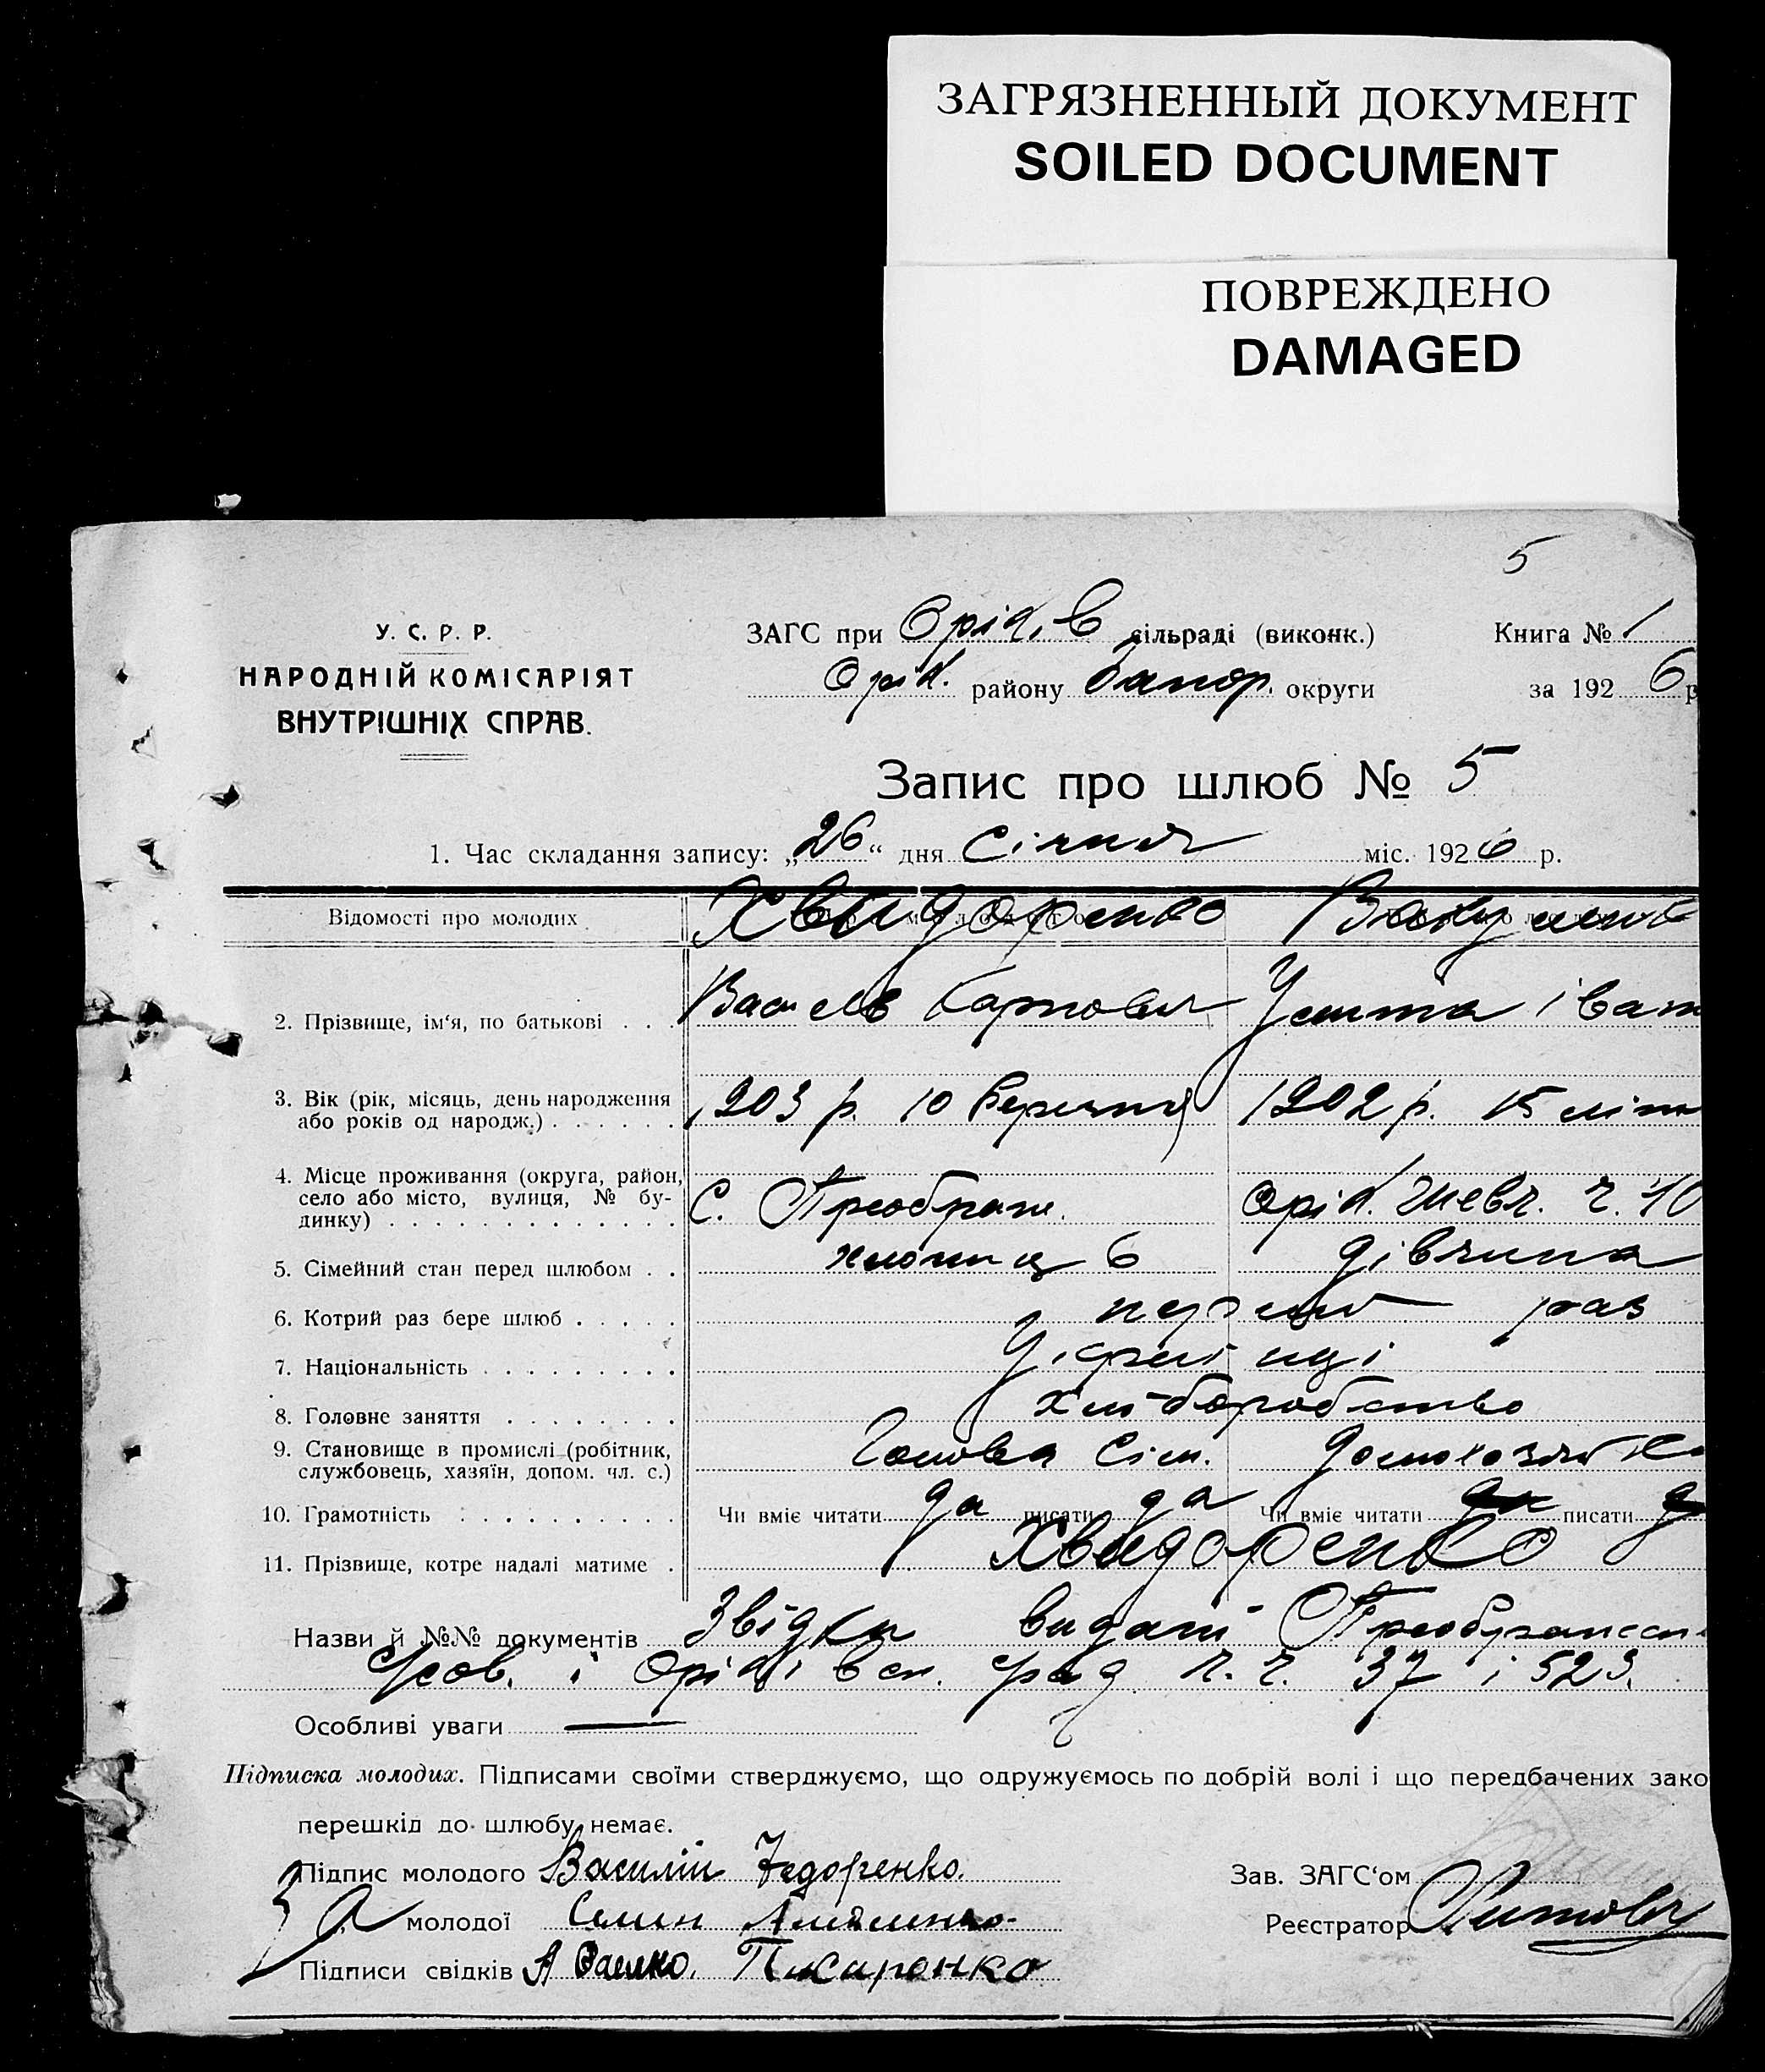 ЗАГРЯЗНЕННЫЙ ДОКУМЕНТ
SOILED DOCUMENT
ПОВРЕЖДЕНО
DAMAGED
5
У. С. Р. Р.
НАРОДНІЙ КОМІСАРІЯТ
ВНУТРІШНІХ СПРАВ.
ЗАГС при Оріхів сільраді (виконк.) Книга № 1
Оріх. району Запор. округи за 1926 р
Запис про шлюб № 5
1. Час складання запису: „26“ дня Січня міс. 1926 р.
Відомості про молодих Хвидоренко
2. Прізвище, ім‘я, по батькові . . . Василь Карпович
3. Вік (рік, місяць, день народження 1903 р. 10 березня 1902 р. 15
або років од народж.) . . . . . .
4. Місце проживання (округа, район,
село або місто, вулиця, № бу- С. Преображ. Оріх. Шевч. ч. 40
динку) . . . . . . . . . . . . .
5. Сімейний стан перед шлюбом . . дівчина
6. Котрий раз бере шлюб . . . . . перший раз
7. Національність . . . . . . . . . Українці
8. Головне заняття . . . . . . . . Хліборобство
9. Становище в промислі (робітник, Голова Сім.
службовець, хазяїн, допом. чл. с.)
10. Грамотність . . . . . . . . . . Чи вміє читати да писати да Чи вміє читати да писати
11. Прізвище, котре надалі матиме . Хвидоренко
Назви й №№ документів Звідки видані
і Оріхівськ. ч. ч. 37 і 523.
Особливі уваги —
Підписка молодих. Підписами своїми стверджуємо, що одружуємось по добрій волі і що передбачених зако
перешкід до шлюбу немає.
Підпис молодого Василий Федоренко. Зав. ЗАГС‘ом
За молодої Семен Реєстратор
Підписи свідків А